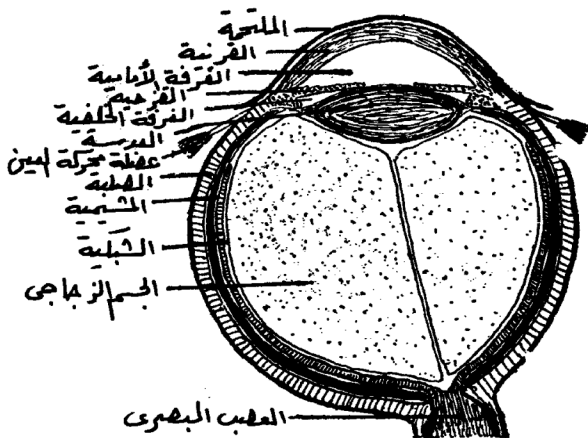 الملتحمة
القرنية
الغرفة الأمامية
القزحية
الغرفة الخلفية
العدسة
عضلة محركة لعين
الصلبة
المشيمية
الشبكية
الجسم الزجاجى
العصب البصرى